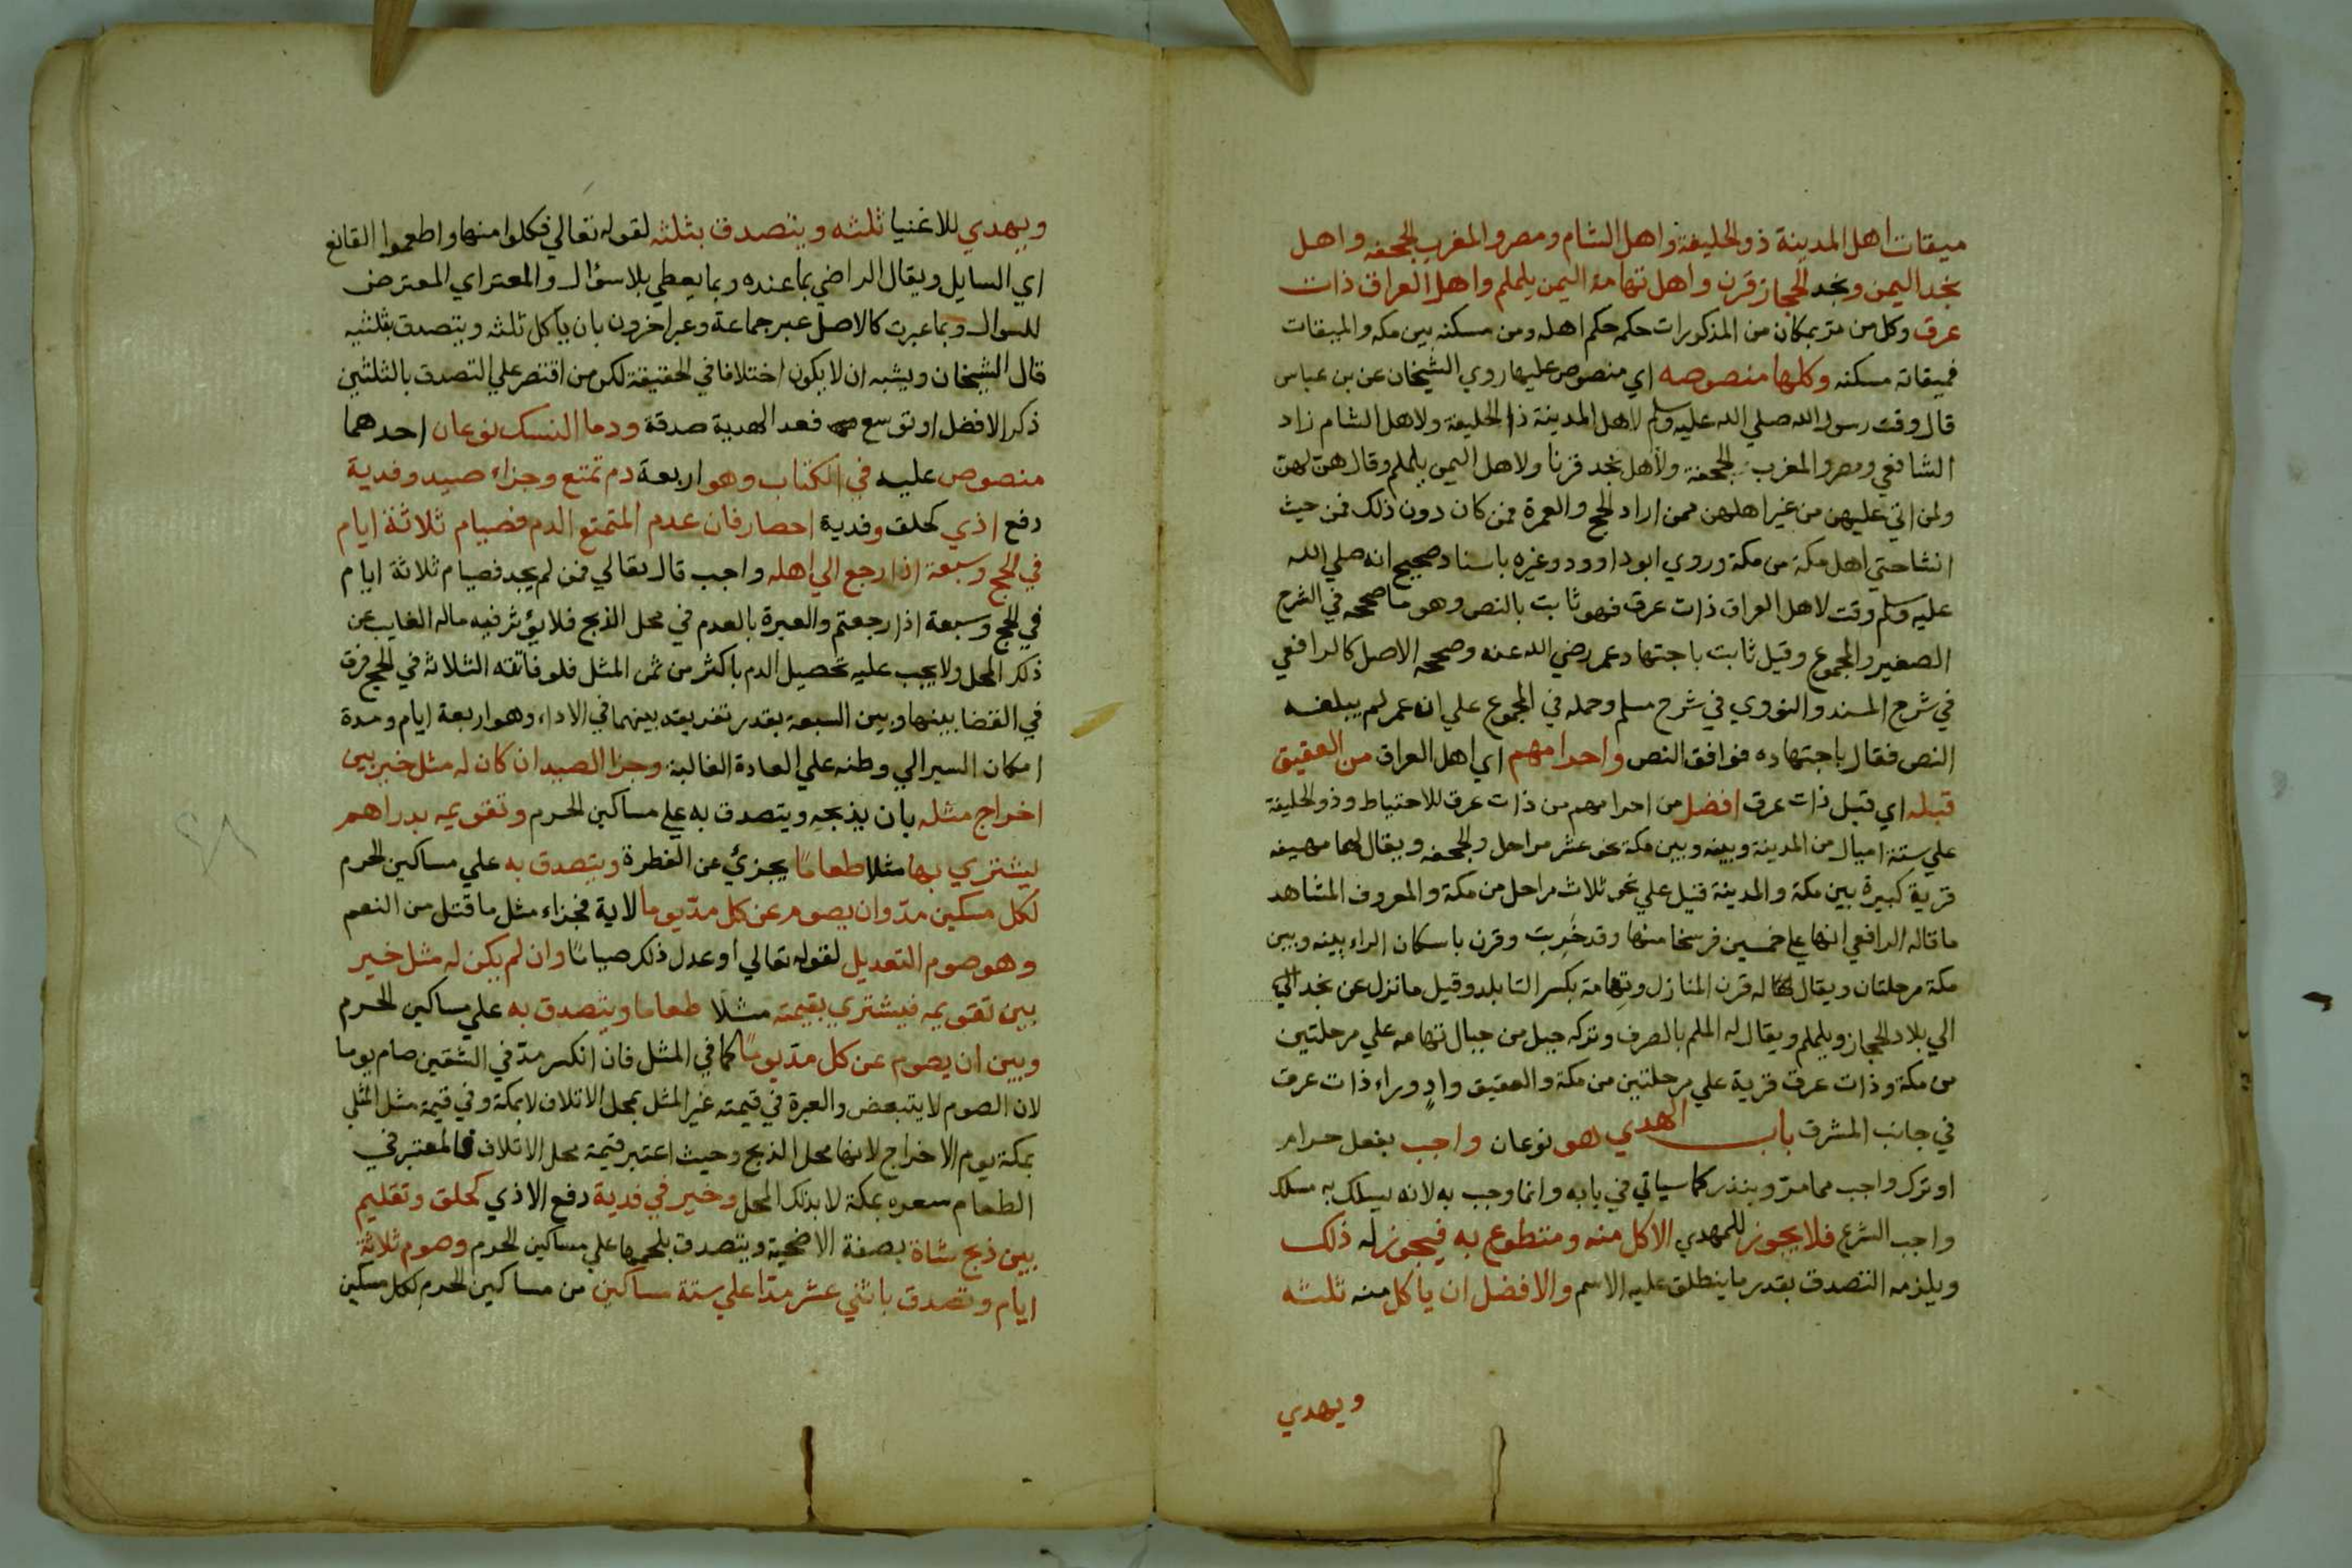 ميقات اهل المدينة ذو الحليفة واهل الشام ومصر والمغرب الجحفه واهل
نجد اليمن ونجد الحجاز قرن واهل تهامة اليمن يلملم واهل العراق ذات
عرق وكل من مر بمكان من المذكورات حكمه حكم اهله ومن مسكنه بين مكه والميقات
فميقاته مسكنه وكلها منصوصه اي منصوص عليها روي الشيخان عن بن عباس
قال وقت رسول الله صلي الله عليه وسلم لاهل المدينة ذا الحليفة ولاهل الشام زاد
الشافعي ومصر والمغرب الجحفة ولاهل نجد قرنا ولاهل اليمن يلملم وقال هن لهن
ولمن اتي عليهن من غير اهلهن ممن اراد الحج والعمرة فمن كان دون ذلك فمن حيث
انشا حتي اهل مكة من مكة وروي ابو داوود وغيره باسناد صحيح انه صلي الله
عليه وسلم وقت لاهل العراق ذات عرق فهو ثابت بالنص وهو ما صححه في الشرح
الصغير والمجموع وقيل ثابت باجتهاد عمر رضي الله عنه وصححه الاصل كالرافعي
في شرح المسند والنووي في شرح مسلم وحمله في المجموع علي ان عمر لم يبلغه
النص فقال باجتهاده فوافق النص واحرامهم اي اهل العراق من العقيق
قبله اي قبل ذات عرق افضل من احرامهم من ذات عرق للاحتياط وذو الحليفة
علي ستة اميال من المدينة وبينه وبين مكة نحو عشر مراحل والجحفه ويقال لها مهيعه
قرية كبيرة بين مكة والمدينة قيل علي نحو ثلاث مراحل من مكة والمعروف المشاهد
ما قاله الرافعي انها علي خمسين فرسخا منها وقد خربت وقرن باسكان الراء بينه وبين
مكة مرحلتان ويقال له قرن المنازل وتهامة بكسر التا بلد وقيل ما نزل عن نجد الي
الي بلاد الحجاز ويلملم ويقال له الملم بالصرف وتركه جبل من جبال تهامه علي مرحلتين
من مكة وذات عرق قرية علي مرحلتين من مكة والعقيق واد وراء ذات عرق
في جانب المشرق باب الهدي هو نوعان واجب بفعل حرام
او ترك واجب مما مر وبنذر كما سياتي في بابه وانما وجب به لانه يسلك به مسلك
واجب الشرع فلا يجوز للمهدي الاكل منه ومتطوع به فيجوز له ذلك
ويلزمه التصدق بقدر ما ينطلق عليه الاسم والافضل ان ياكل منه ثلثه
ويهدي
ويهدي للاغنيا ثلثه ويتصدق بثلثه لقوله تعالي فكلوا منها واطعموا القانع
اي السايل ويقال الراضي بما عنده وبما يعطي بلا سؤال والمعتر اي المعترض
للسوال وبما عبرت كالاصل عبر جماعة وعبر اخرون بان ياكل ثلثه ويتصدق بثلثيه
قال الشيخان ويشبه ان لا يكون اختلافا في الحقيقة لكن من اقتصر علي التصدق بالثلثين
ذكر الافضل او توسع فعد الهدية صدقة ودما النسك نوعان احدهما
منصوص عليه في الكتاب وهو اربعة دم تمتع وجزاء صيد وفدية
دفع اذي كحلق وفدية احصار فان عدم المتمتع الدم فصيام ثلاثة ايام
في الحج وسبعة اذا رجع الي اهله واجب قال تعالي فمن لم يجد فصيام ثلاثة ايام
في الحج وسبعة اذا رجعتم والعبرة بالعدم في محل الذبح فلا يؤثر فيه ماله الغايب عن
ذلك المحل ولا يجب عليه تحصيل الدم باكثر من ثمن المثل فلو فاتته الثلاثة في الحج فرق
في القضا بينها وبين السبعة بقدر تفريقه بينهما في الاداء وهو اربعة ايام ومدة
امكان السير الي وطنه علي العادة الغالبة وجزا الصيد ان كان له مثل خير بين
اخراج مثله بان يذبحه ويتصدق به علي مساكين الحرم وتقويمه بدراهم
يشتري بها مثلا طعاما يجزئ عن الفطرة ويتصدق به علي مساكين الحرم
لكل مسكين مد وان يصوم عن كل مد يوما لاية فجزاء مثل ما قتل من النعم
وهو صوم التعديل لقوله تعالي أو عدل ذلك صياما وان لم يكن له مثل خير
بين تقويمه فيشتري بقيمته مثلا طعاما ويتصدق به علي مساكين الحرم
وبين ان يصوم عن كل مد يوما كما في المثل فان انكسر مد في الشقين صام يوما
لان الصوم لا يتبعض والعبرة في قيمته غير المثل بمحل الاتلاف لا بمكة وفي قيمة مثل المثلي
بمكة يوم الاخراج لانها محل الذبح وحيث اعتبر قيمة محل الاتلاف فالمعتبر في
الطعام سعره بمكة لا بذلك المحل وخير في فدية دفع الاذي كحلق وتقليم
بين ذبح شاة بصفة الاضحية ويتصدق بلحمها علي مساكين الحرم وصوم ثلاثة
ايام وتصدق باثني عشر مدا علي ستة مساكين من مساكين الحرم لكل مسكين